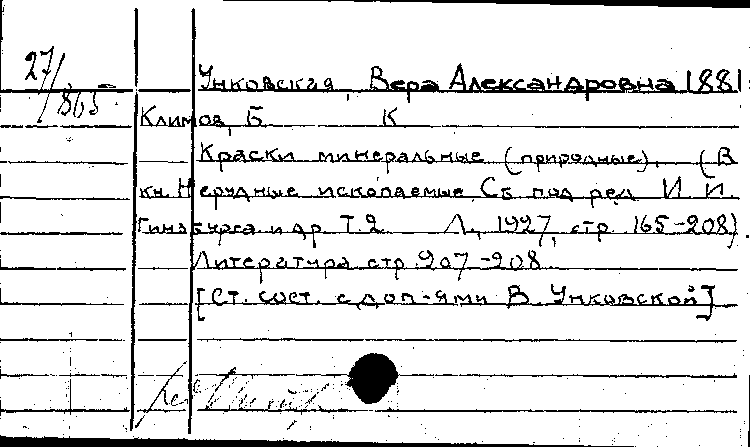 27/865
Унковская, Вера Александровна 1881-
Климов, Б К
Краски минеральные (природные). (В
кн. Нерудные ископаемые. Сб. под ред. И. И.
Гинзбурга и др. Т.2 Л., 1927, стр. 165-208).
Литература стр. 207-208
[Ст. сост. с доп-ями В. Унковской]